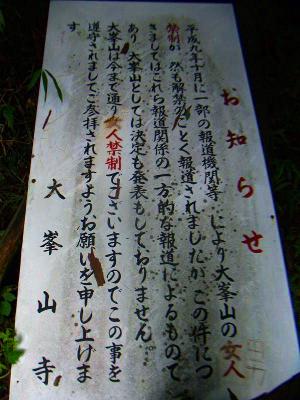 お知らせ
平成九年十月に一部の報道機関等により大峯山の女人
禁制が然も解禁のごとく報道されましたがこの件につ
きましてはこれら報道関係の一方的な報道によるもので
あり大峯山としては決定も発表もしておりません
大峯山は今まで通り女人禁制でございますのでこの事を
遵守されましてご参拝されますようお願いを申し上げま
す。
大峯山寺